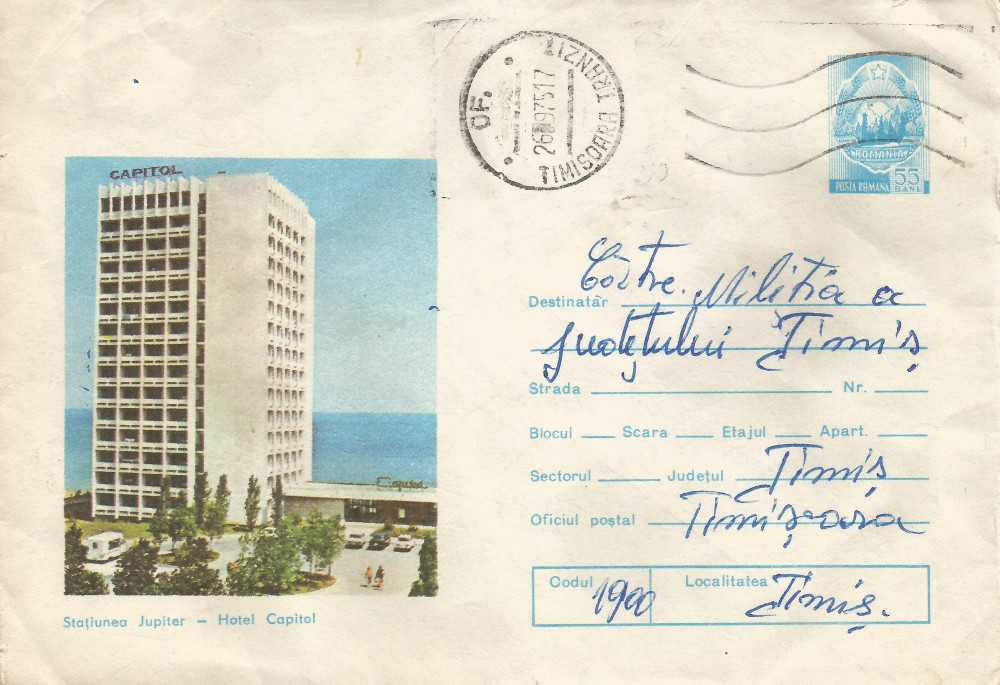 CAPITOL
Capitol
Stațiunea Jupiter – Hotel Capitol
OF.
TIMISOARA TRANZIT
ROMANIA
POSTA ROMANA 55 BANI
Destinatar Către Miliția a
Județului Timiș
Strada Nr.
Blocul Scara Etajul Apart.
Sectorul Județul Timiș
Oficiul poștal Timișoara
Codul 1900 Localitatea Timiș.